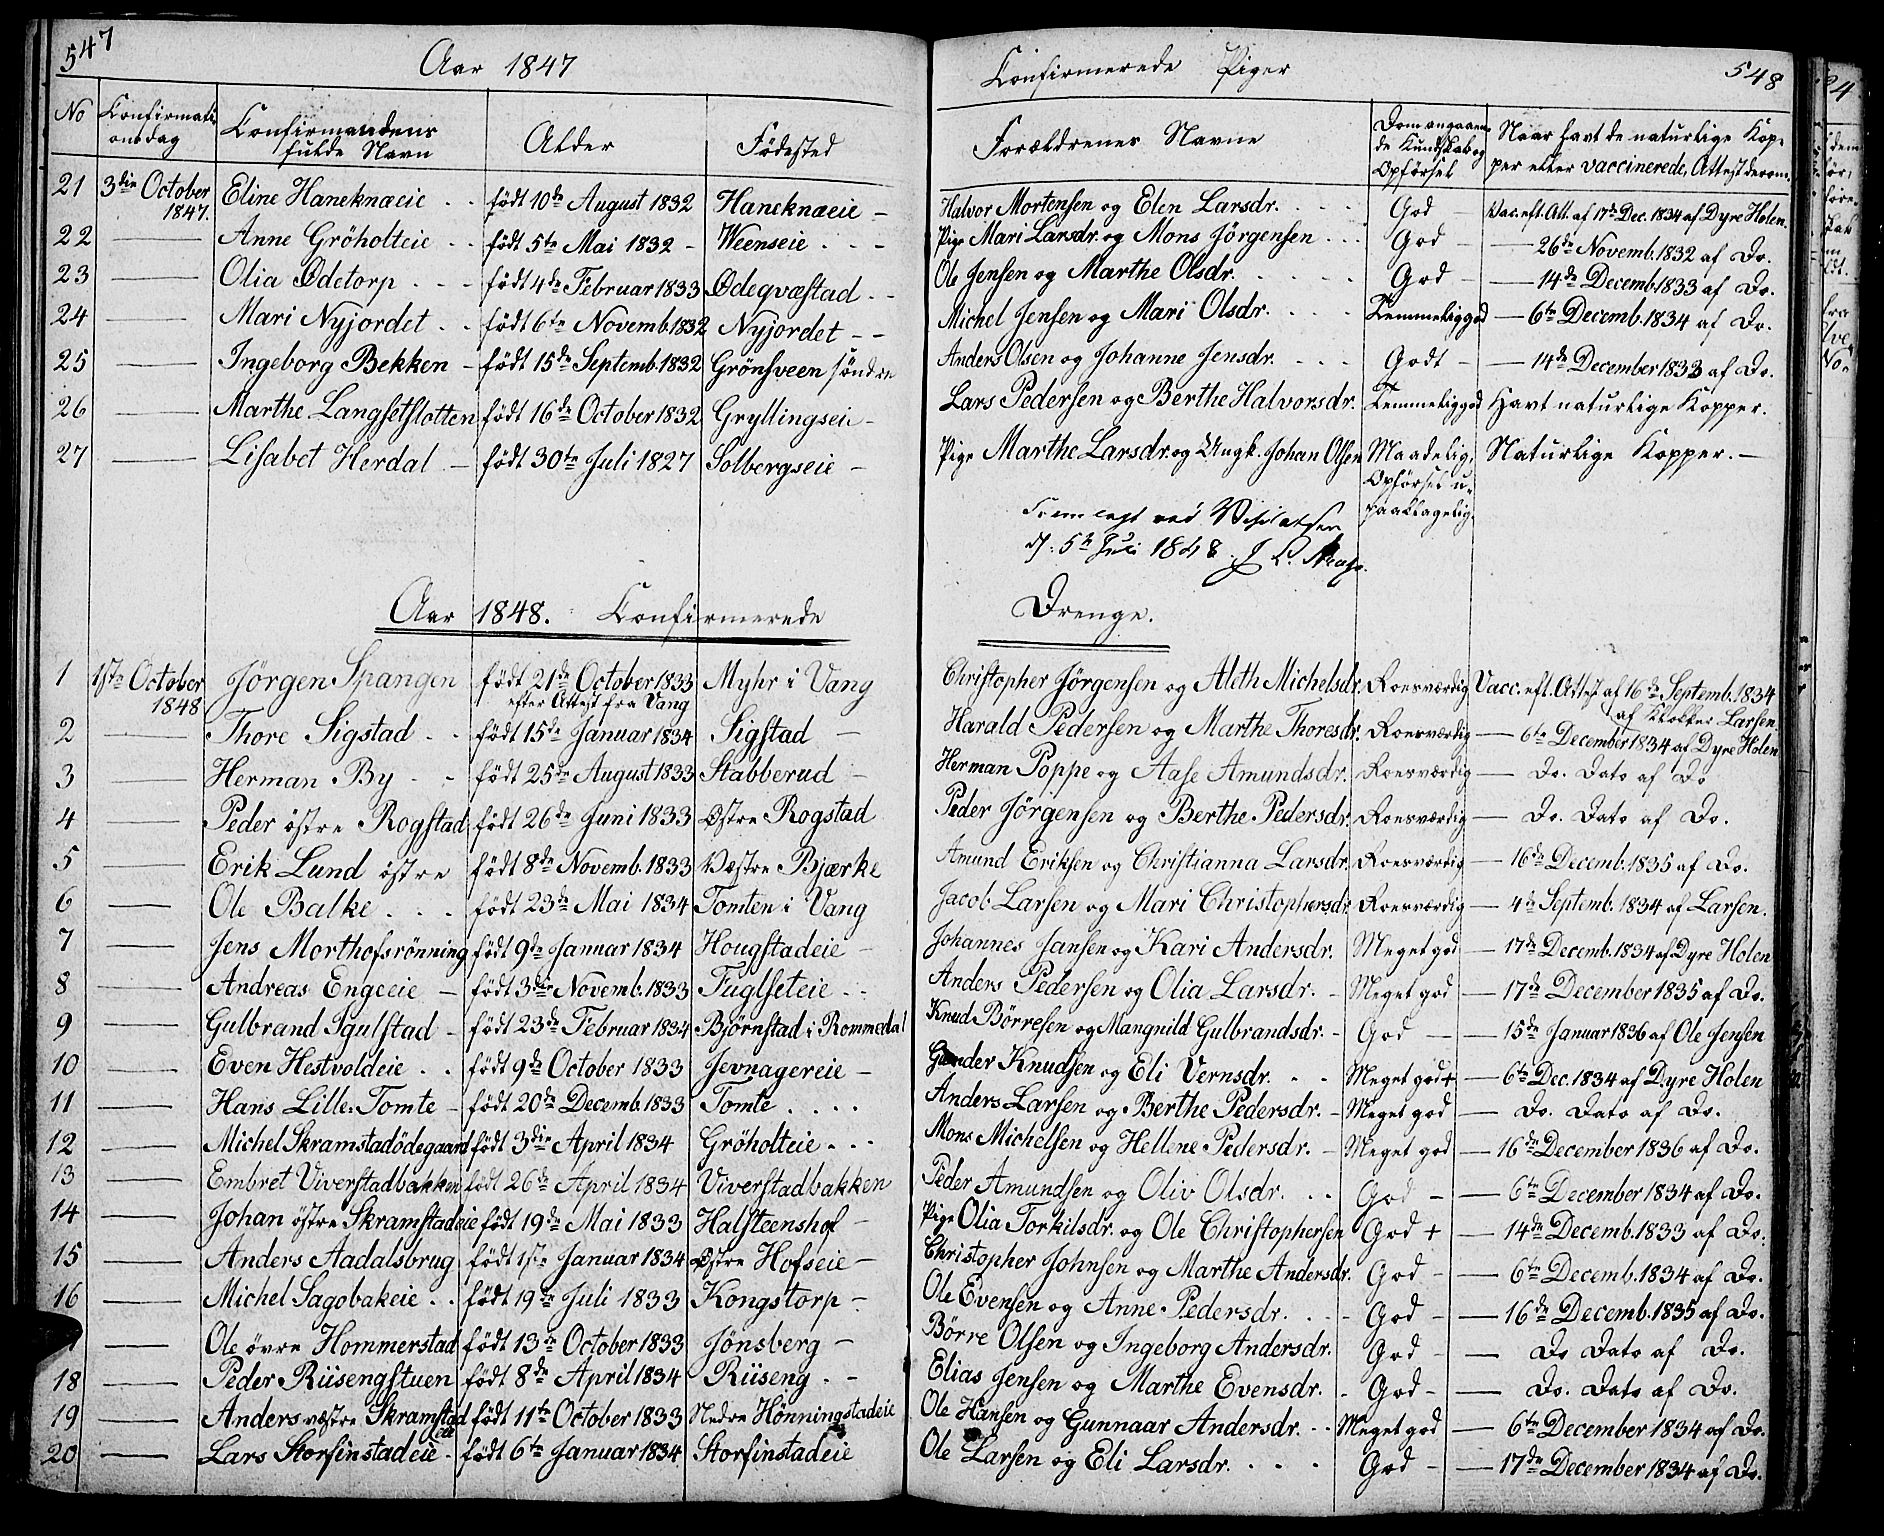 547
Aar 1847
Confirmerede Piger
548
No Confirmati-onsdag Confirmandens fulde Navn Alder Födested Forældrenes Navne Dom angaaende Kundskab og Opförsel Naar havt de naturlige Kopper eller vaccinerede, Attest derom.
21 3die October 1847. Eline Haneknæeie født 10de August 1832 Haneknæeie Halvor Mortensen og Elen Larsdr. God Vac. eft. Att. af 17de Dec. 1834 af Dyre Holen.
22 Anne Gröholteie født 5te Mai 1832 Weenseie Pige Mari Larsdr. og Mons Jörgensen God 26de Novemb. 1832 af Do.
23 Olia Ødetorp født 4de Februar 1833 Ødeqvæstad Ole Jensen og Marthe Olsdr. God 14de Decemb. 1833 af Do.
24 Mari Nyjordet født 6te Novemb. 1832 Nyjordet Michel Jensen og Mari Olsdr. Temmelig god 6te Decemb. 1834 af Do.
25 Ingeborg Bekken født 15de Septemb. 1832 Grönsveen søndre Anders Olsen og Johanne Jensdr. Godt 14de December 1833 af Do.
26 Marthe Langsetslotten født 16de October 1832 Gryllingseie Lars Pedersen og Berthe Halvorsdr. Temmelig god Havt naturlige Kopper.
27 Lisabet Herdal født 30te Juli 1827 Solbergseie Pige Marthe Larsdr. og Ungk. Johan Olsen Maadelig, Opförsel upaaklagelig. Naturlige Kopper.
Fremlagt ved Visitatsen
d: 5te Juli 1848
Aar 1848. Confirmerede Drenge.
1 1ste October 1848 Jörgen Spangen født 21de October 1833 efter Attest fra Vang Myhr i Vang Christopher Jörgensen og Aleth Michelsdr. Roesværdig Vacc. eft. Attest af 16de Septemb. 1834 af Klokker Larsen
2 Thore Sigstad født 15de Januar 1834 Sigstad Harald Pedersen og Marthe Thoresdr. Roesværdig 6te December 1834 af Dyre Holen
3 Herman By født 25de August 1833 Stabberud Herman Poppe og Aase Amundsdr. Roesværdig Do. Dato af Do
4 Peder östre Rogstad født 26de Juni 1833 Østre Rogstad Peder Jörgensen og Berthe Pedersdr. Roesværdig Do. Dato af Do.
5 Erik Lund östre født 8de Novemb. 1833 Væstre Bjærke Amund Eriksen og Christianna Larsdr. Roesværdig 16de Decemb. 1835 af Do.
6 Ole Balke født 23de Mai 1834 Tomten i Vang Jacob Larsen og Mari Christophersdr. Roesværdig 4de Septemb. 1834 af Larsen.
7 Jens Morthofsrönning født 9de Januar 1834 Hougstadeie Johannes Jansen og Kari Andersdr. Meget god 17de Decemb. 1834 af Dyre Holen
8 Andreas Engeeie født 3die Novemb. 1833 Fuglseteie Anders Pedersen og Olia Larsdr. Meget god 17de December 1835 af Do.
9 Gulbrand Igulstad født 23de Februar 1834 Björnstad i Rommedal Knud Börresen og Mangnild Gulbrandsdr. God 15de Januar 1836 af Ole Jensen
10 Even Hestvoldeie født 9de October 1833 Jevnagereie Gunder Knudsen og Eli Vernsdr. Meget god+ 6te Dec. 1834 af Dyre Holen
11 Hans Lille-Tomte født 20de Decemb. 1833 Tomte Anders Larsen og Berthe Pedersdr. Meget god Do. Dato af Do.
12 Michel Skramstadödegaard født 3die April 1834 Gröholteie Mons Michelsen og Hellene Pedersdr. Meget god 16de December 1836 af Do.
13 Embret Viverstadbakken født 26de April 1834 Viverstadbakken Peder Amundsen og Oliv Olsdr. God 6te December 1834 af Do.
14 Johan östre Skramstadeie født 19de Mai 1833 Halsteenshof Pige Olia Torkilsdr. og Ole Christophersen God + 14de Decemb. 1833 af Do.
15 Anders Aadalsbrug født 1ste Januar 1834 Østre Hofseie Christopher Johnsen og Marthe Andersdr. God 6te Decemb. 1834 af Do.
16 Michel Sagobakeie født 19de Juli 1833 Kongstorp Ole Evensen og Anne Pedersdr. God 16de Decemb. 1835 af Do.
Ole övre Hommerstad født 13de October 1833 Jönsberg Börre Olsen og Ingeborg Andersdr. God Do Dato af Do.
18 Peder Riisengstuen født 8de April 1834 Riiseng Elias Jensen og Marthe Evensdr. God Do. Dato af Do.
19 Anders væstre Skramstadeie født 11te October 1833 Nedre Hönningstadeie Ole Hansen og Gunnaar Andersdr. Meget god 6te December 1834 af Do.
20 Lars Storfinstadeie født 6te Januar 1834 Storfinstadeie Ole Larsen og Eli Larsdr. God 17de December 1834 af Do.